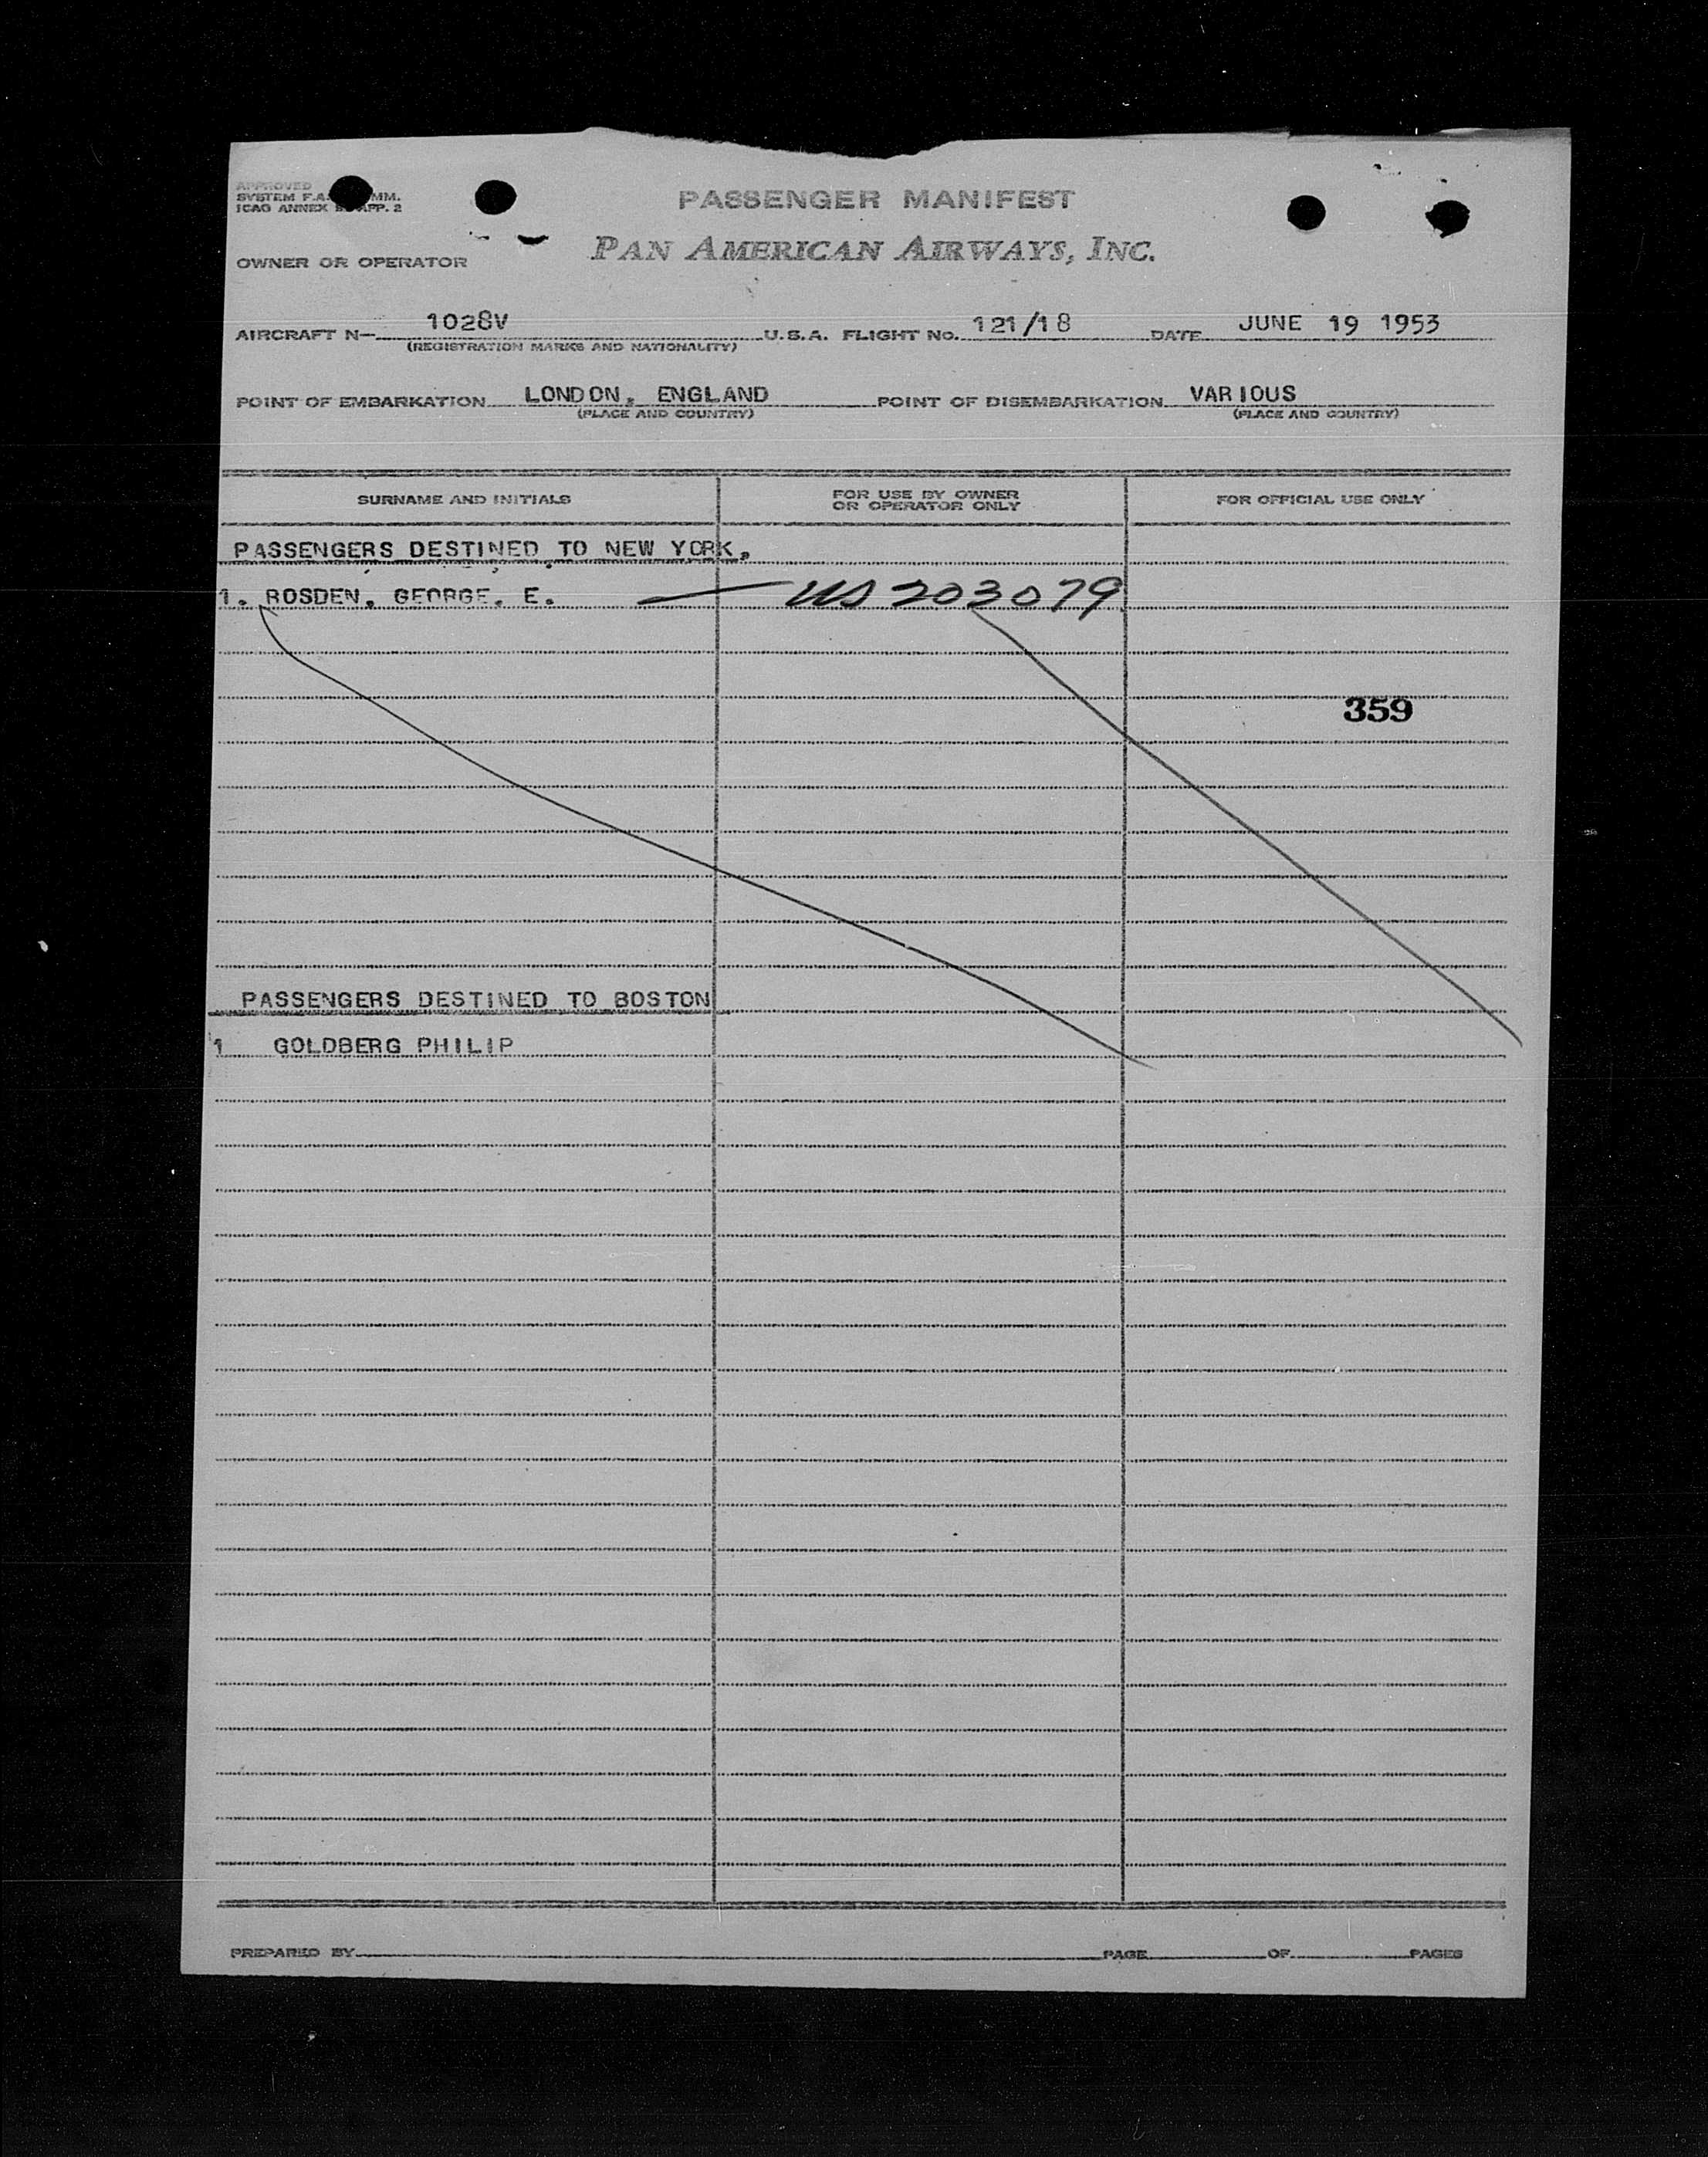 APPROVED
SYSTEM F.A. MM.
ICAO ANNEX APP. 2
PASSENGER MANIFEST
OWNER OR OPERATOR PAN AMERICAN AIRWAYS, INC.
AIRCRAFT N— 1028V U.S.A. FLIGHT No. 121/18 DATE JUNE 19 1953
(REGISTRATION MARKS AND NATIONALITY)
POINT OF EMBARKATION LONDON, ENGLAND POINT OF DISEMBARKATION VARIOUS
(PLACE AND COUNTRY) (PLACE AND COUNTRY)
SURNAME AND INITIALS FOR USE BY OWNER OR OPERATOR ONLY FOR OFFICIAL USE ONLY
PASSENGERS DESTINED TO NEW YORK,
1. ROSDEN, GEORGE, E. — US 203079
359
PASSENGERS DESTINED TO BOSTON
1 GOLDBERG PHILIP
PREPARED BY PAGE OF PAGES